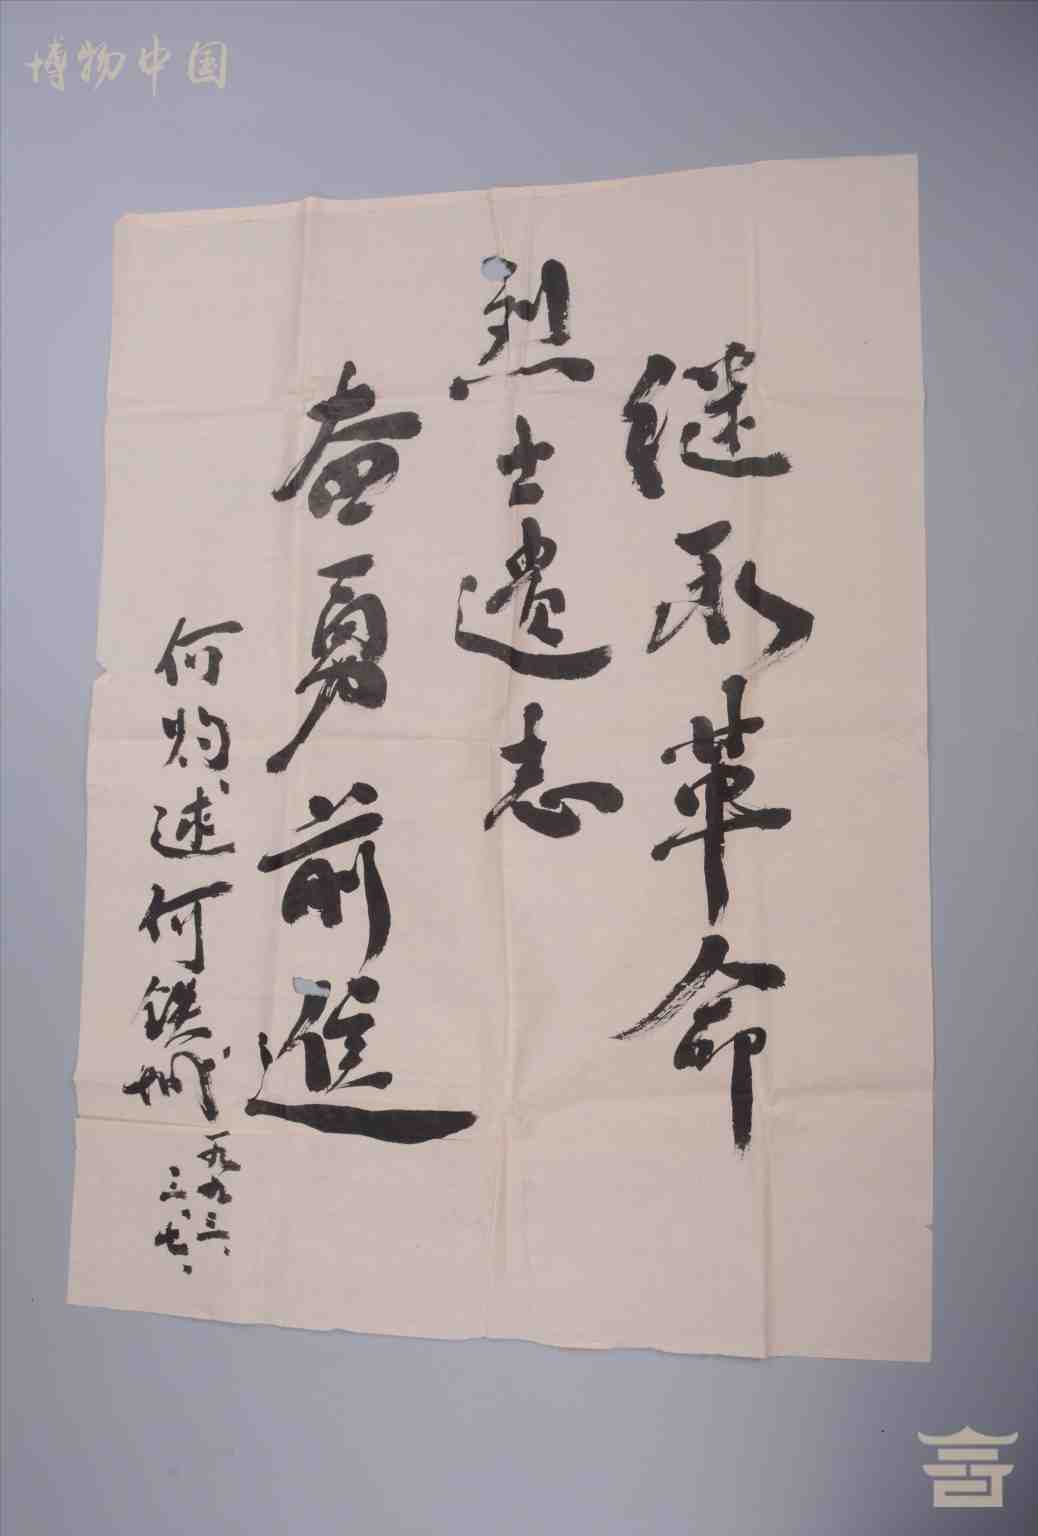 博物中国
继承革命
烈士遗志
奋勇前進
何灼述何鐵城
一九九三、
三、七、